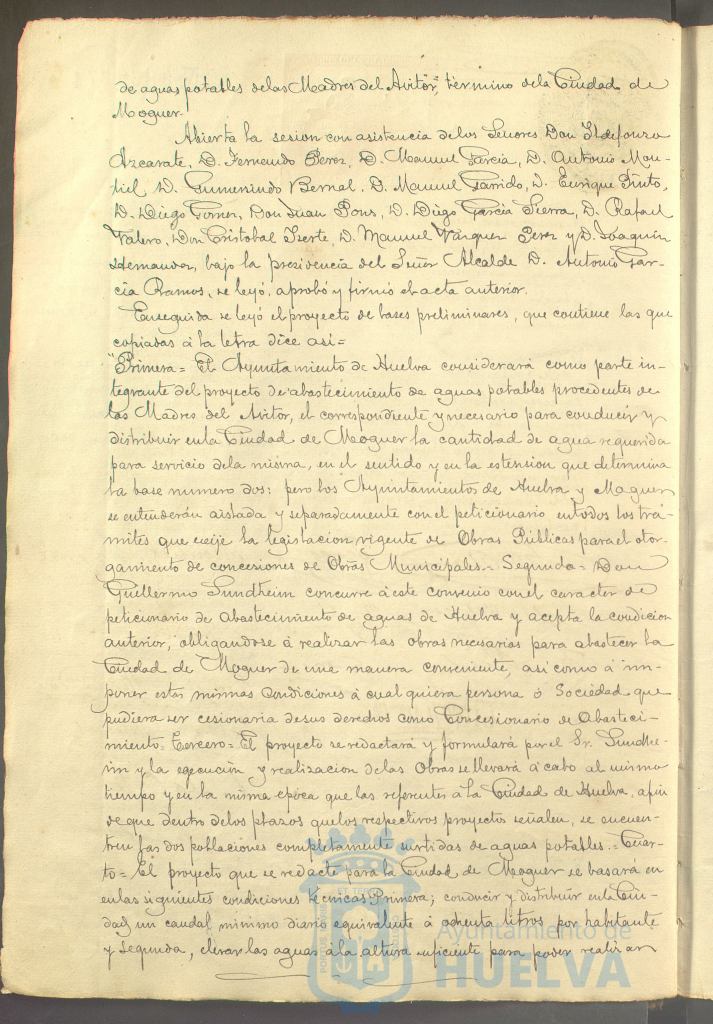 de aguas potables delas Madres del Avitor, término dela Ciudad de
Moguer.
Abierta la sesion con asistencia delos Señores Don Ildefonso
Azcarate, D. Fernando Perez, D. Manuel Garcia, D. Antonio Mon-
tiel, D. Gumenindo Bernal, D. Manuel Garrido, D. Enrique Pinto,
D. Diego Gomez, Don Juan Pons, D. Diego Garcia Sierra, D. Rafael
Valero, Don Cristobal Iserte, D. Manuel Vazquez Perez y D. Joaquin
Hernandez, bajo la presidencia del Señor Alcalde D. Antonio Gar-
cia Ramos, se leyó, aprobó y firmó el acta anterior.
Enseguida se leyó el proyecto de bases preliminares, que contiene las que
copiadas á la letra dice así=
"Primera= El Ayuntamiento de Huelva considerará como parte in-
tegrante del proyecto de abastecimiento de aguas potables procedentes de
las Madres del Avitor, el correspondiente y necesario para conducir y
distribuir enla Ciudad de Moguer la cantidad de agua requerida
para servicio dela misma, en el sentido y en la estension que determina
la base numero dos: pero los Ayuntamientos de Huelva y Moguer
se entenderán aislada y separadamente con el peticionario entodos los trá-
mites que exije la legislacion vigente de Obras Públicas para el otor-
gamiento de concesiones de Obras Municipales.- Segunda= Don
Guillermo Sundheim concurre á este convenio con el caracter de
peticionario de abastecimiento de aguas de Huelva y acepta la condicion
anterior, obligandose á realizar las obras necesarias para abastecer la
Ciudad de Moguer de una manera conveniente, asi como á im-
poner estas mismas condiciones á cual quiera persona ó Sociedad que
pudiera ser cesionaria desus derechos como Concesionario de Abasteci-
miento= Tercero= El proyecto se redactará y formulará por el Sr. Sundhe-
im y la egecución y realizacion delas Obras se llevará á cabo al mismo
tiempo y en la misma época que las referentes á la Ciudad de Huelva, afin
de que dentro delos plazos quelos respectivos proyectos señalen, se encuen-
tren las dos poblaciones completamente surtidas de aguas potables.= Cuar-
to= El proyecto que se redacte para la Ciudad de Moguer se basará en
enlas siguientes condiciones técnicas Primera; conducir y distribuir enla Ciu-
dad un caudal minimo diario equivalente á ochenta litros por habitante
y segunda, elevar las aguas á la altura suficiente para poder realizar
Ayuntamiento de
HUELVA